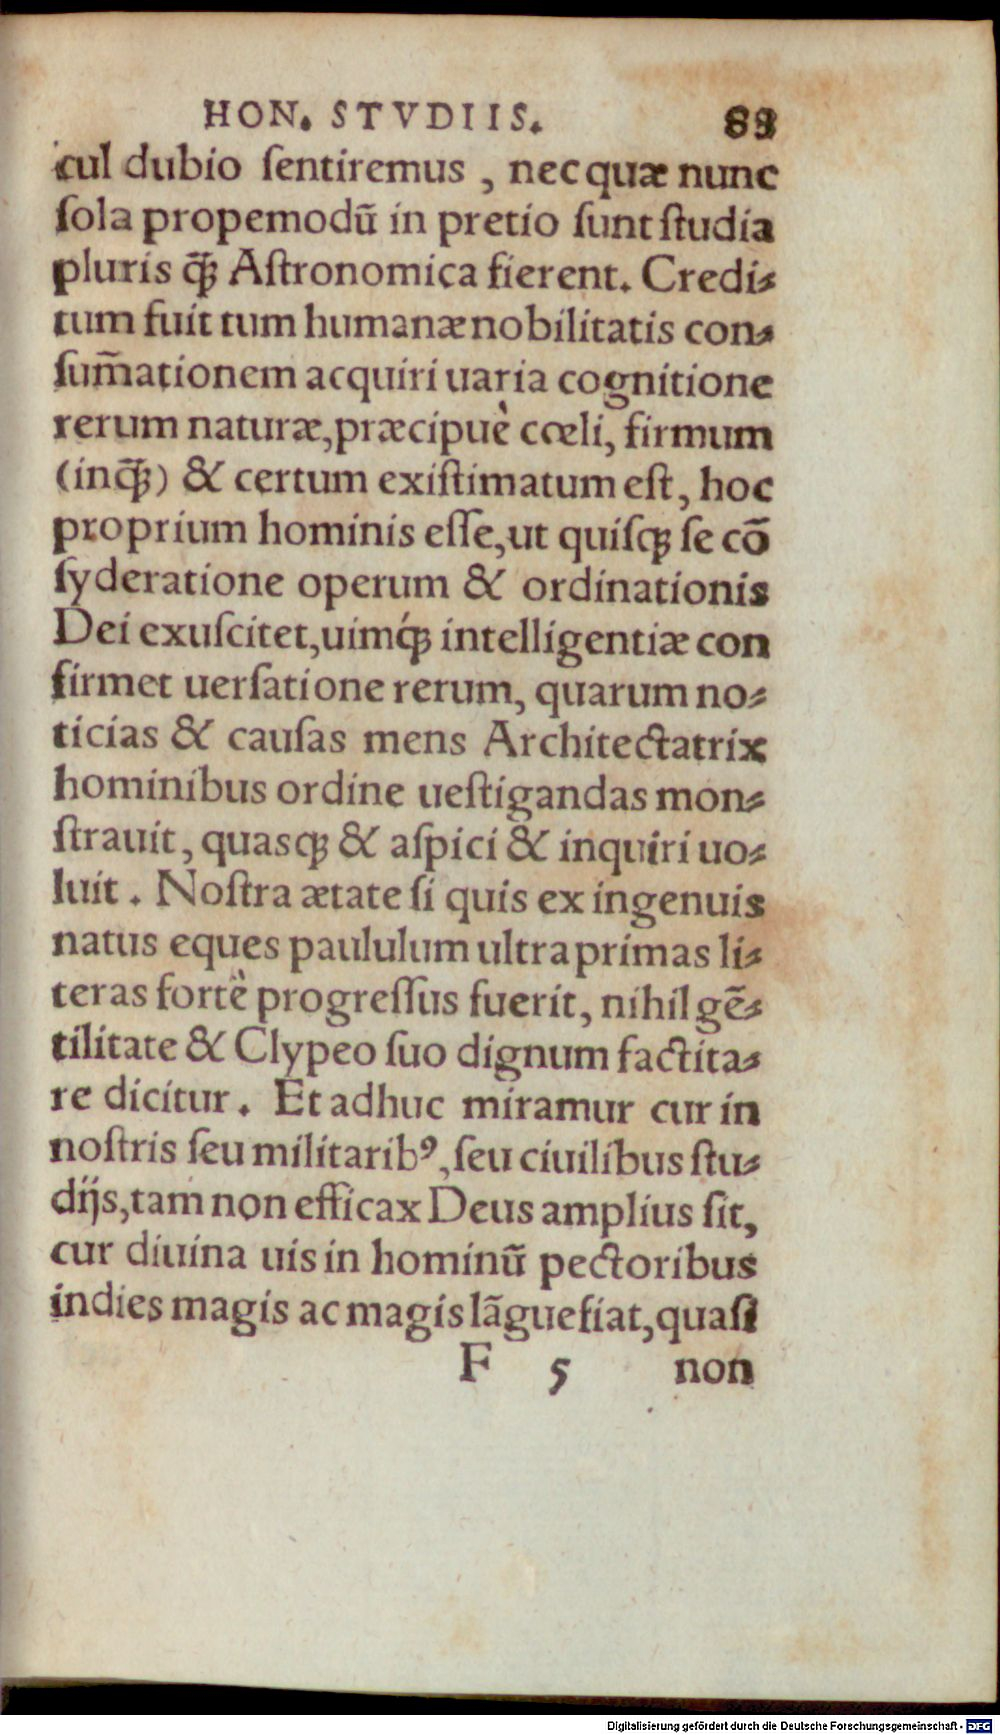 HON. STVDIIS. 83
cul dubio ſentiremus, nec quæ nunc
ſola propemodũ in pretio ſunt ſtudia
pluris q̃ꝫ Aſtronomica fierent. Credi⸗
tum fuit tum humanæ nobilitatis con⸗
ſum̃ationem acquiri uaria cognitione
rerum naturæ, præcipuè cœli, firmum
(inq̃ꝫ) & certum exiſtimatum eſt, hoc
proprium hominis eſſe, ut quiſqꝫ ſe cõ
ſyderatione operum & ordinationis
Dei exuſcitet, uimq́ꝫ intelligentiæ con
firmet uerſatione rerum, quarum no⸗
ticias & cauſas mens Architectatrix
hominibus ordine ueſtigandas mon⸗
ſtrauit, quasqꝫ & aſpici & inquiri uo⸗
luit. Noſtra ætate ſi quis ex ingenuis
natus eques paululum ultra primas li⸗
teras fortè progreſſus fuerit, nihil gẽ⸗
tilitate & Clypeo ſuo dignum factita⸗
re dicitur. Et adhuc miramur cur in
noſtris ſeu militaribꝰ, ſeu ciuilibus ſtu⸗
dijs, tam non efficax Deus amplius ſit,
cur diuina uis in hominũ pectoribus
indies magis ac magis lãguefiat, quaſi
F 5 non
Digitalisierung gefördert durch die Deutsche Forschungsgemeinschaft - DFG